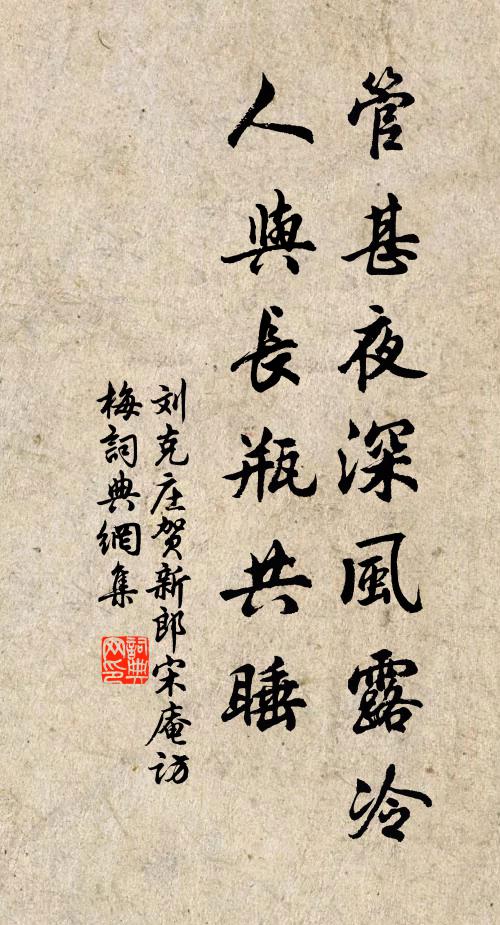 管甚夜深風露冷
人與長瓶共睡
刘克庄贺新郎宋庵访
梅詞典網集
詞典网印